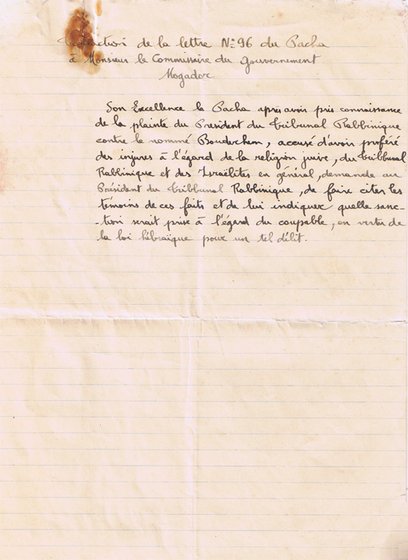 Traduction de la lettre No 96 du Pacha
à Monsieur le Commissaire du Gouvernement
Mogador
Son Excellence le Pacha après avoir pris connaissance
de la plainte du President du Tribunal Rabbinique
contre le nommé Bouderhem, accusé d'avoir proféré
des injures à l'égard de la religion juive, du Tribunal
Rabbinique et des Israëlites en général, demande au
Président du Tribunal Rabbinique, de faire citer les
temoins de ces faits et de lui indiquer quelle sanc-
-tion serait prise à l'égard du coupable, en vertu de
la loi hébraïque pour un tel délit.